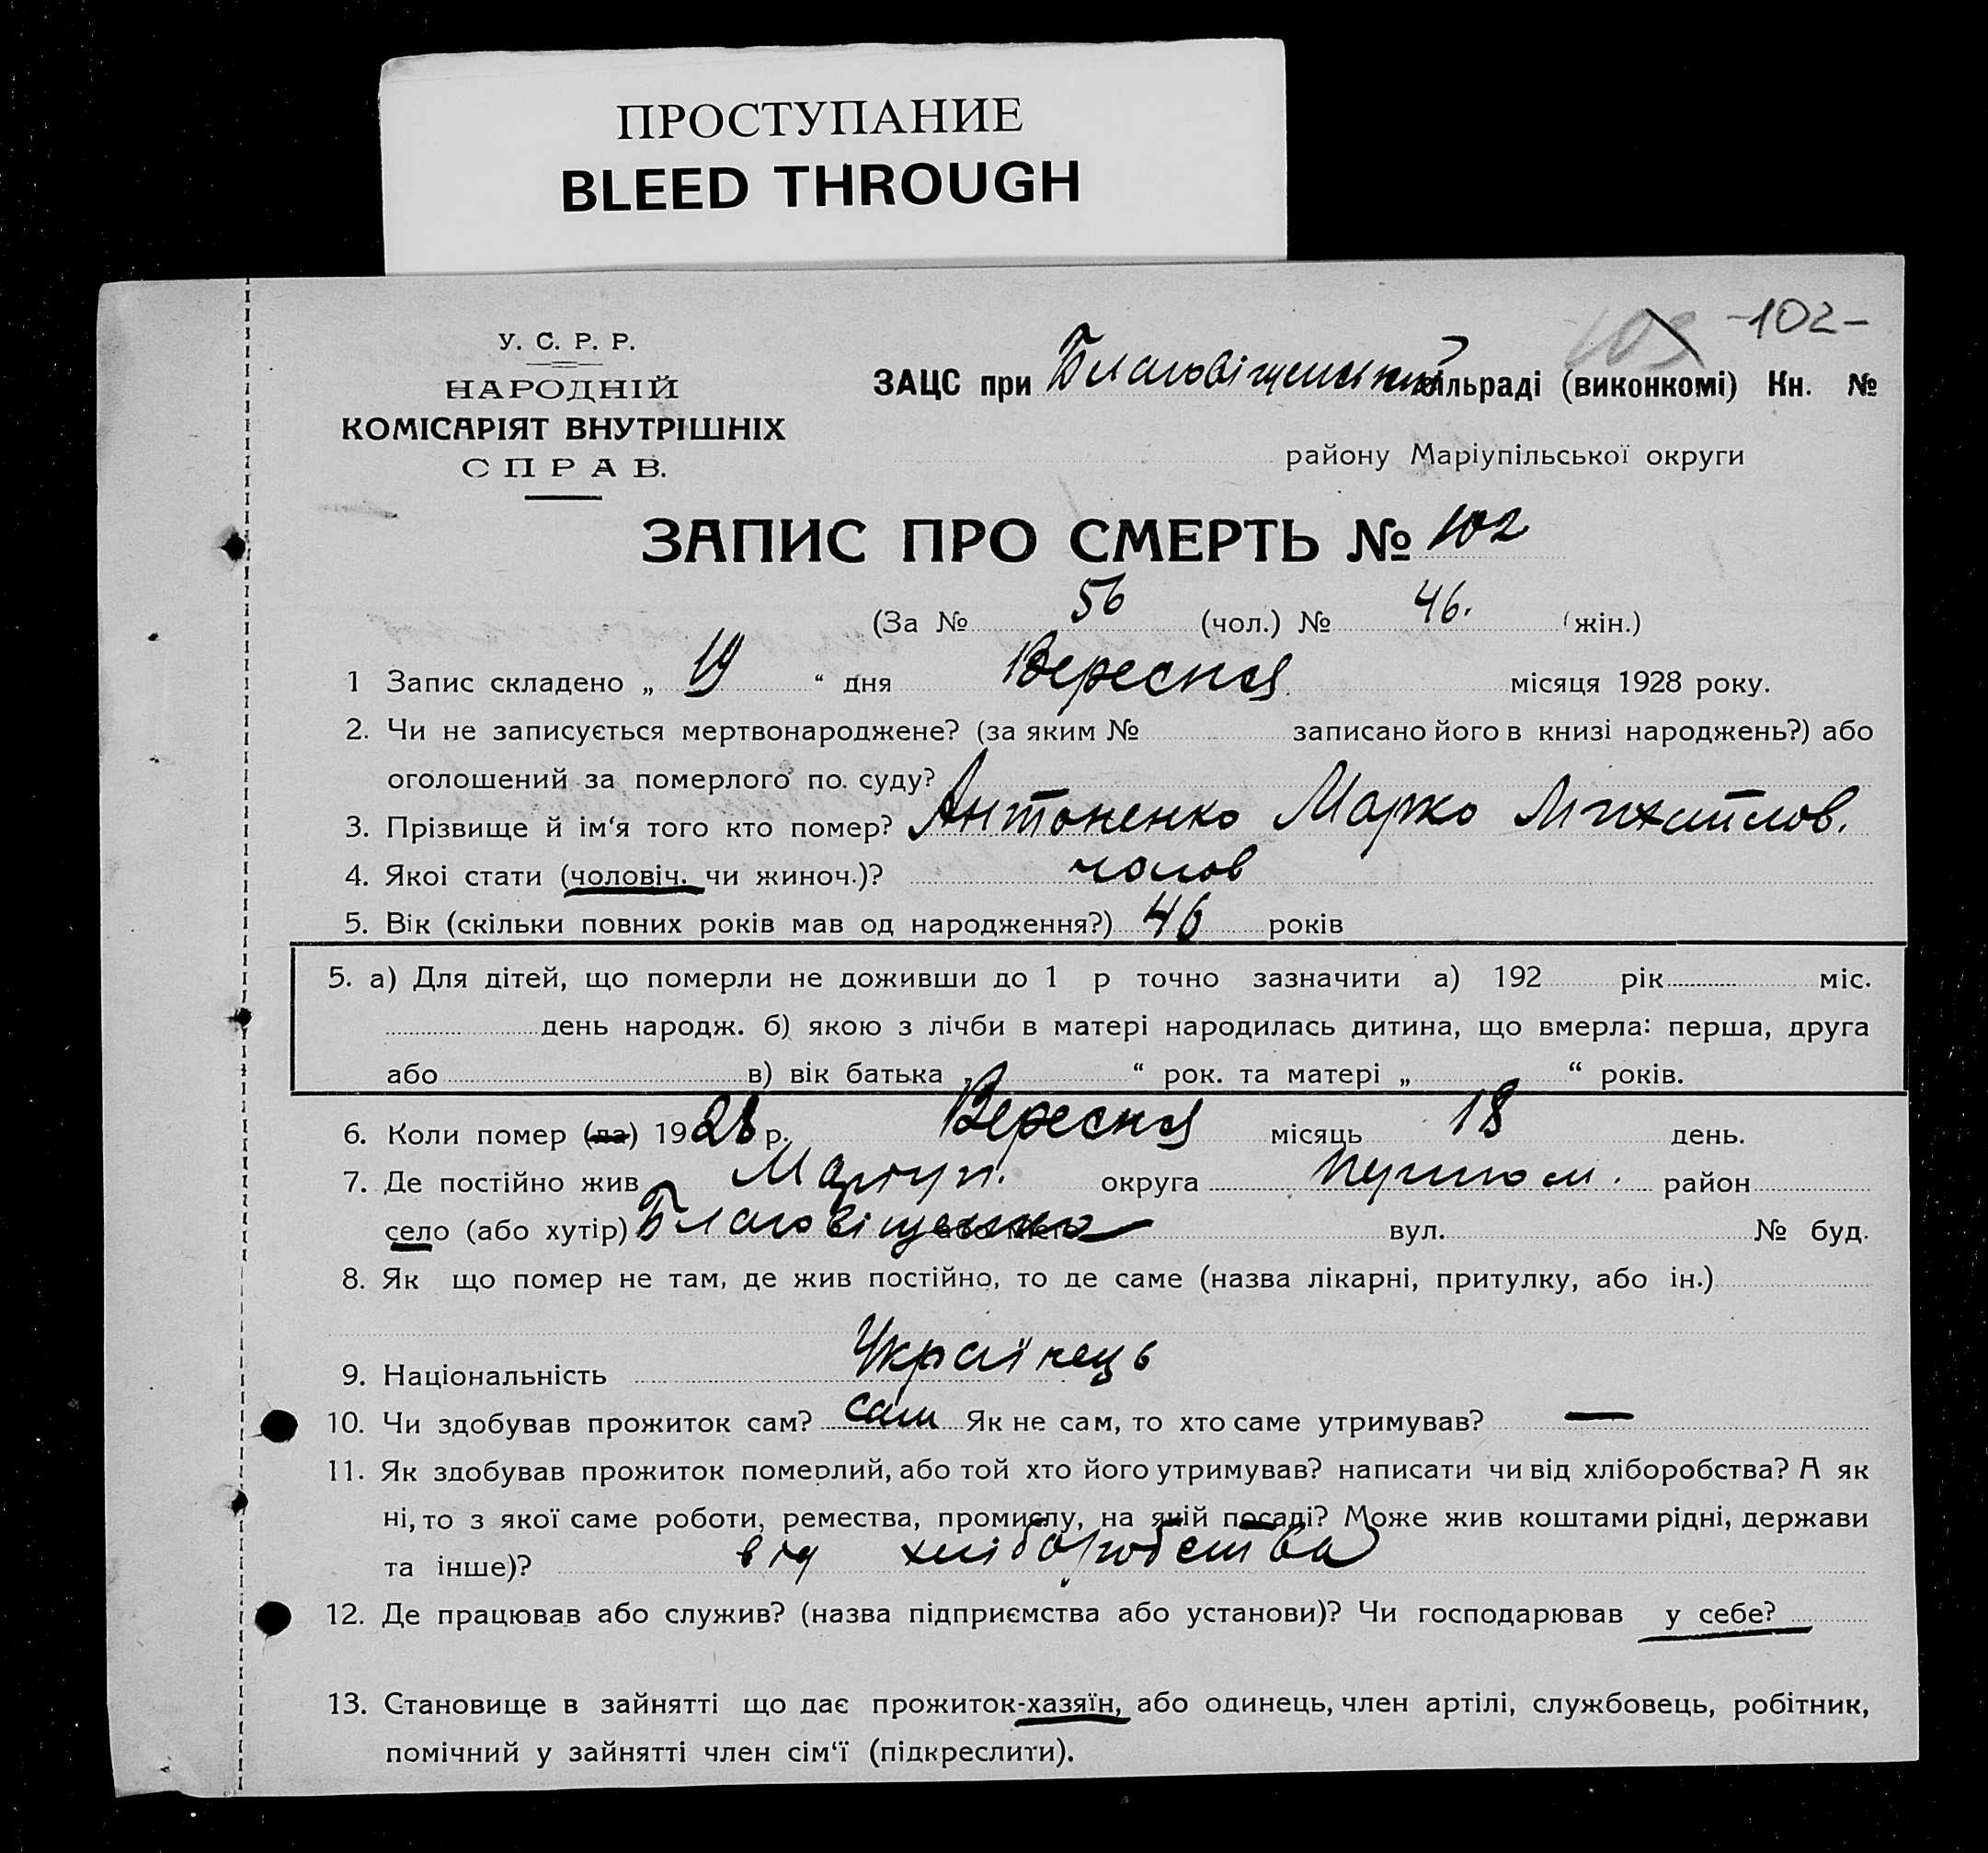 ПРОСТУПАНИЕ
BLEED THROUGH
-102-
У. С. Р. Р.
НАРОДНІЙ
КОМІСАРІЯТ ВНУТРІШНІХ
СПРАВ.
ЗАЦС при Благовіщенській сільраді (виконкомі) Кн. №
району Маріупільської округи
ЗАПИС ПРО СМЕРТЬ № 102
(За № 56 (чол.) № 46. (жін.)
1 Запис складено „ 19 “ дня Вересня місяця 1928 року.
2. Чи не записується мертвонароджене? (за яким № записано його в книзі народжень?) або
оголошений за померлого по. суду?
3. Прізвище й ім‘я того кто помер? Антоненко Марко Михайлов.
4. Якоі стати (чоловіч. чи жиноч.)? чолов
5. Вік (скільки повних років мав од народження?) 46 років
5. а) Для дітей, що померли не доживши до 1 р точно зазначити а) 192 рік міс.
день народж. б) якою з лічби в матері народилась дитина, що вмерла: перша, друга
або в) вік батька „ “ рок. та матері „ “ років.
6. Коли помер (ла) 1928 р. Вересня місяць 18 день.
7. Де постійно жив Маріуп. округа район
село (або хутір) Благовіщенка вул. № буд.
8. Як що помер не там, де жив постійно, то де саме (назва лікарні, притулку, або ін.)
9. Національність Українець
10. Чи здобував прожиток сам? сам Як не сам, то хто саме утримував? —
11. Як здобував прожиток померлий, або той хто його утримував? написати чи від хліборобства? А як
ні, то з якої саме роботи, ремества, промислу, на якій посаді? Може жив коштами рідні, держави
та інше)? від хліборобства
12. Де працював або служив? (назва підприємства або установи)? Чи господарював у себе?
13. Становище в зайнятті що дає прожиток-хазяїн, або одинець, член артілі, службовець, робітник,
помічний у зайнятті член сім‘ї (підкреслити).